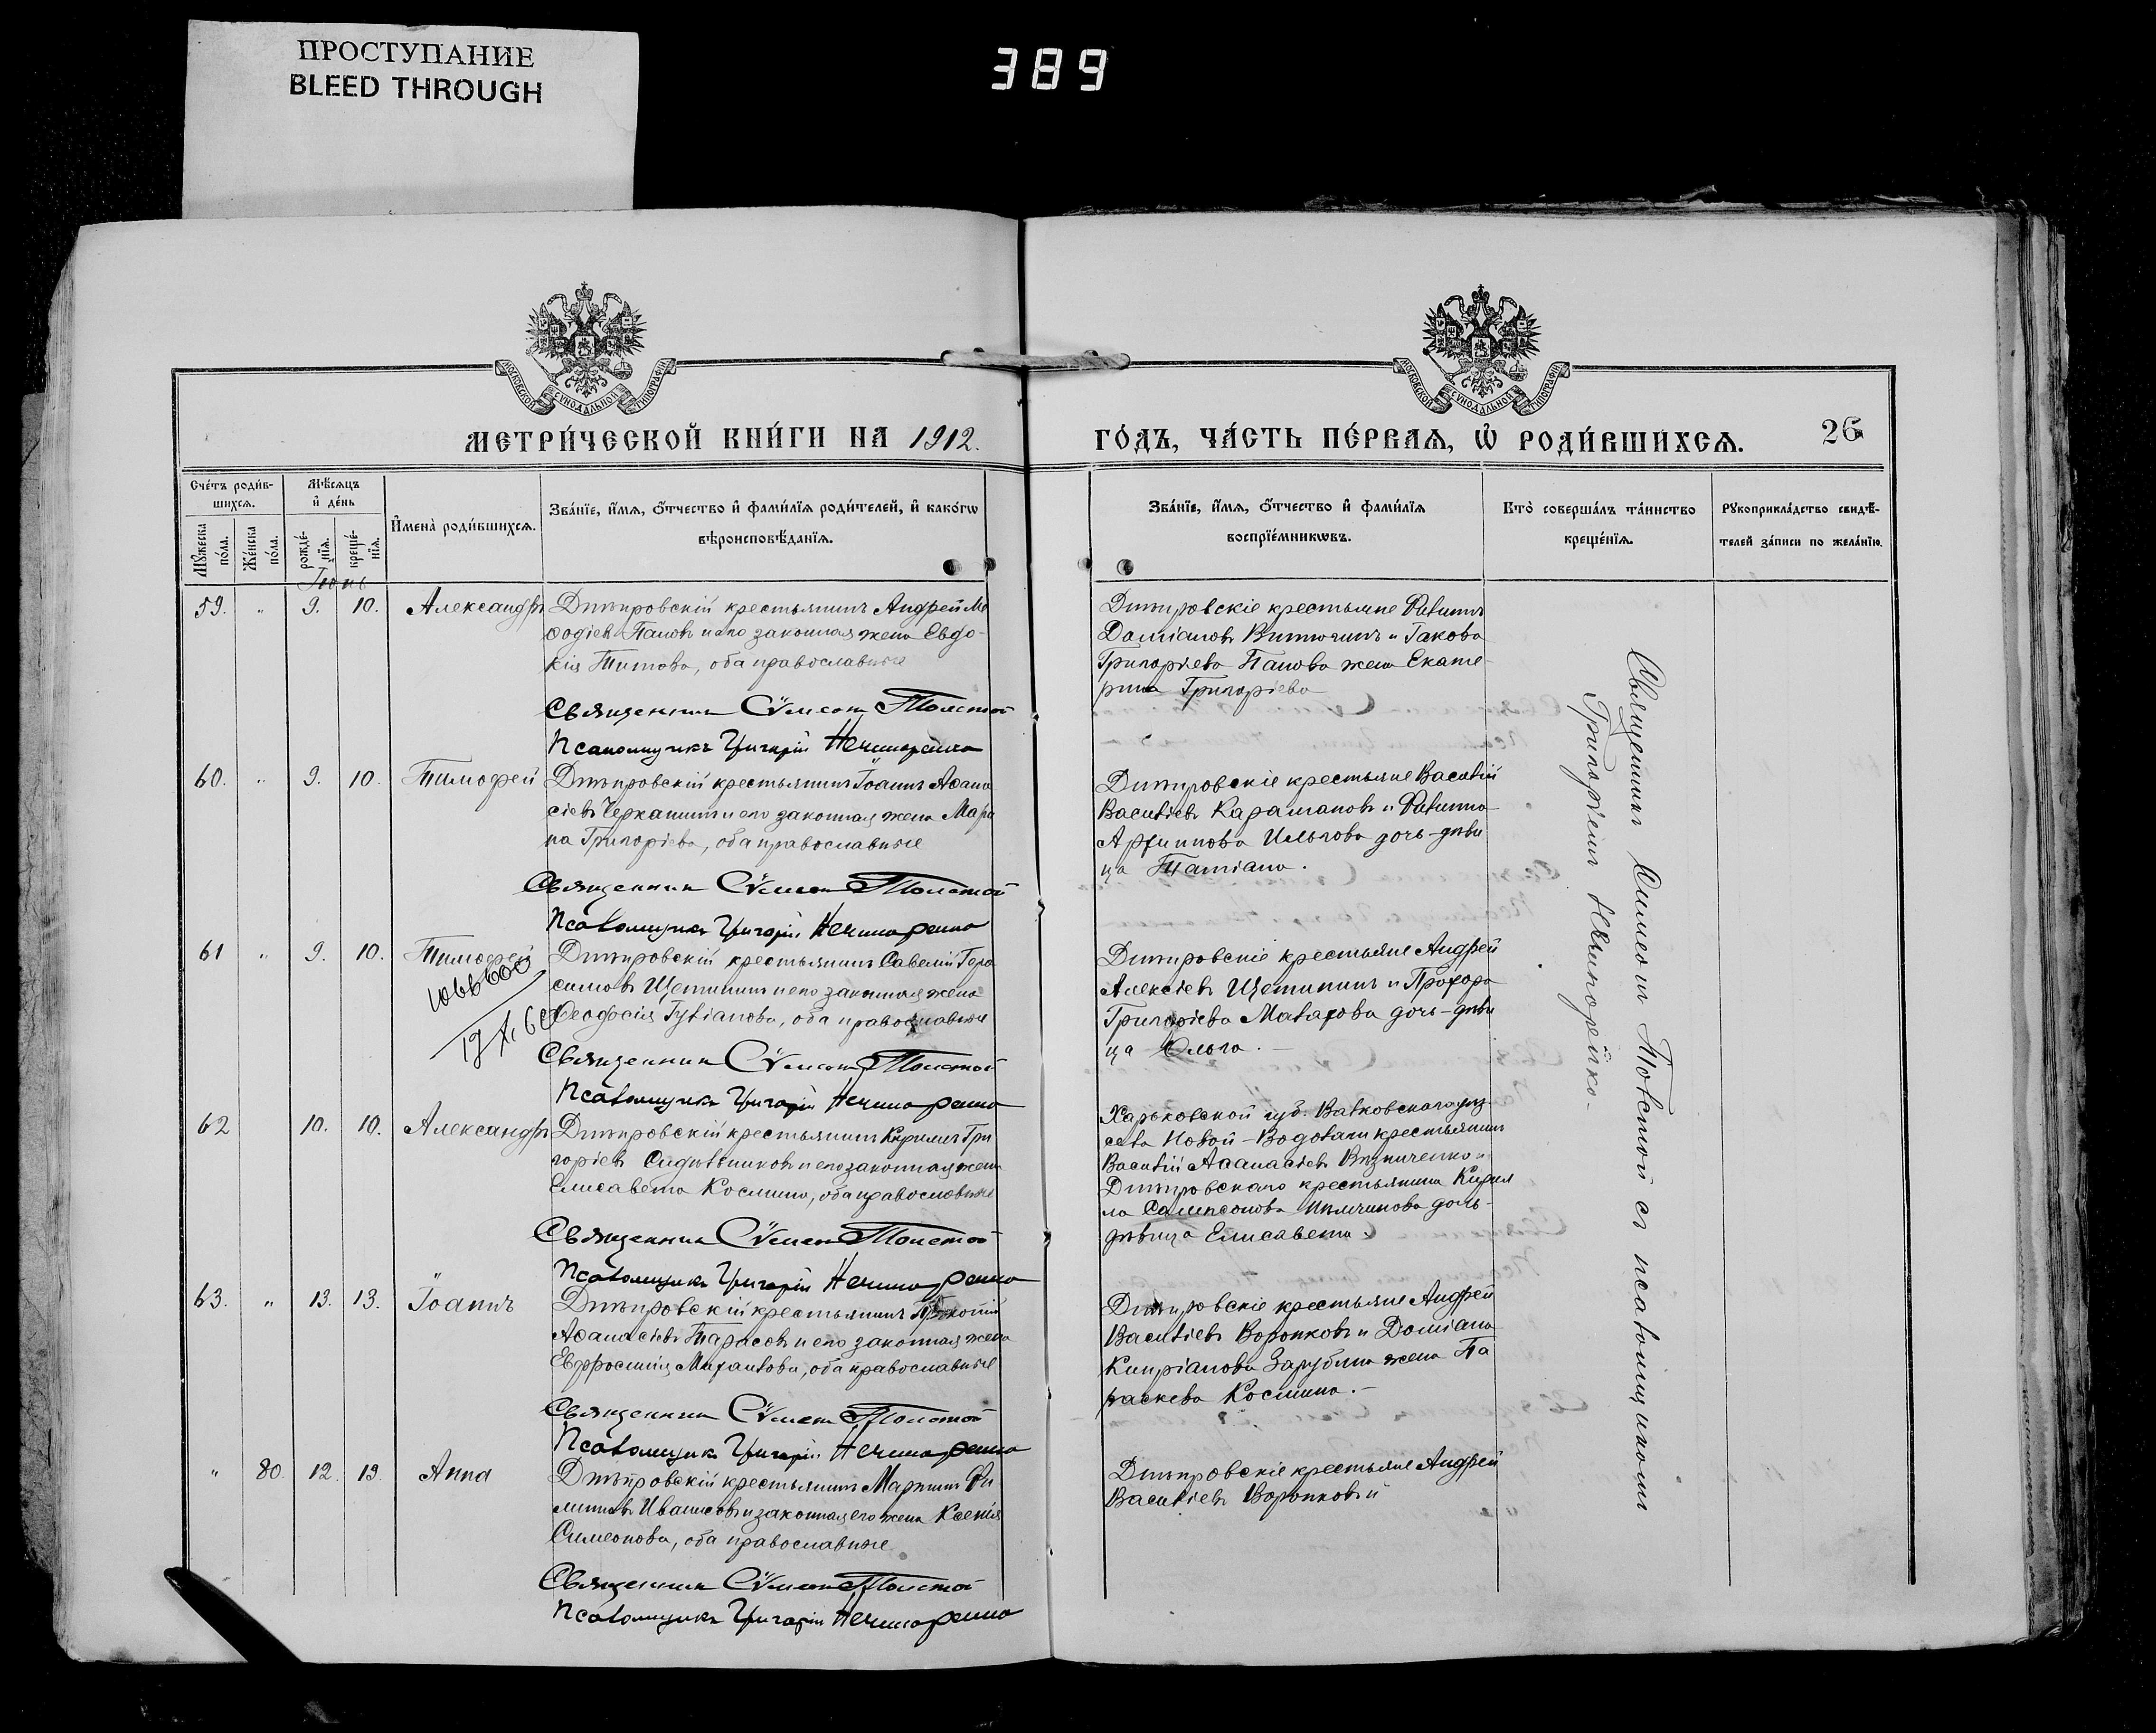 ПРОСТУПАНИЕ
BLEED THROUGH
389
МОСКОВСКОЙ СѴНОДАЛЬНОЙ ТИПОГРАФІИ
МОСКОВСКОЙ СѴНОДАЛЬНОЙ ТИПОГРАФІИ
МЕТРИ́ЧЕСКОЙ КНИ́ГИ НА 1912.
ГО́ДЪ, ЧА́СТЬ ПЕ́РВАѦ, Ѡ҆ РОДИ́ВШИХСѦ.
26
Сче́тъ роди́в-
шихсѧ.
Мꙋ́жеска по́ла.
Же́нска по́ла.
Мѣ́сѧцъ
и҆ де́нь
рожде́-нїѧ.
креще́-нїѧ.
И҆мена̀ роди́вшихсѧ.
Зва́нїе, и҆́мѧ, ѻ҆́тчество и҆ фами́лїѧ роди́телей, и҆ како́гѡ
вѣроисповѣ́данїѧ.
Зва́нїе, и҆́мѧ, ѻ҆́тчество и҆ фами́лїѧ
воспрїе́мникѡвъ.
Кто̀ соверша́лъ та́инство
креще́нїѧ.
Рꙋкоприкла́дство свидѣ́-
телей за́писи по жела́нїю.
Іюнь
59. " 9. 10. Александръ
Днѣпровскій крестьянинъ Андрей Ме
ѳодіевъ Пановъ и его законная жена Евдо-
кія Титова, оба православные
Священникъ Сѵмеонъ Толстой
Псаломщикъ Григорій Нечипоренко
Днѣпровскіе крестьяне Филиппъ
Доміановъ Витютинъ и Іакова
Григоріева Панова жена Екате-
рина Григоріева
60. " 9. 10. Тимофей
Днѣпровскій крестьянинъ Іоаннъ Аѳана
сіевъ Черкашинъ и его законная жена Мари
на Григоріева, оба православные
Священникъ Сѵмеонъ Толстой
Псаломщикъ Григорій Нечипоренко
Днѣпровскіе крестьяне Василій
Васильевъ Карамановъ и Филиппа
Архиппова Ильчова дочь-дѣви
ца Татіана.
61 " 9. 10. Тимофей
1066600
Днѣпровскій крестьянинъ Савелій Гера
симовъ Щетининъ и его законная жена
Ѳеодосія Гуліанова, оба православные
Священникъ Сѵмеонъ Толстой
Псаломщикъ Григорій Нечипоренко
Днѣпровскіе крестьяне Андрей
Алексіевъ Щетининъ и Прохора
Григоріева Макарова дочь-дѣви
ца Ольга.
62 10. 10. Александръ
Днѣпровскій крестьянинъ Кириллъ Гри
горіевъ Сидѣльниковъ и его законная жена
Елисавета Космина, оба православные
Священникъ Сѵмеонъ Толстой
Псаломщикъ Григорій Нечипоренко
Харьковской губ. Валковскаго уѣз.
села Новой-Водолаги крестьянинъ
Василій Аѳанасіевъ и
Днѣпровскаго крестьянина Кирил
ла Сампсонова дочь-
дѣвица Елисавета.
63. " 13. 13. Іоаннъ
Днѣпровскій крестьянинъ Прокопій
Аѳанасіевъ Тарасовъ и его законная жена
Евфросинія Михаилова, оба православные
Священникъ Сѵмеонъ Толстой
Псаломщикъ Григорій Нечипоренко
Днѣпровскіе крестьяне Андрей
Васильевъ Воронковъ и Доміана
Кипріанова Зарубина жена Па
раскева Космина.-
" 80. 12. 13. Анна
Днѣпровскій крестьянинъ Мартинъ Фи
липповъ и законная его жена Ксенія
Симеонова, оба православные
Священникъ Сѵмеонъ Толстой
Псаломщикъ Григорій Нечипоренко
Днѣпровскіе крестьяне Андрей
Васильевъ Воронковъ и
Священникъ Симеонъ Толстой съ псаломщикомъ
Григоріемъ Нечипоренко.